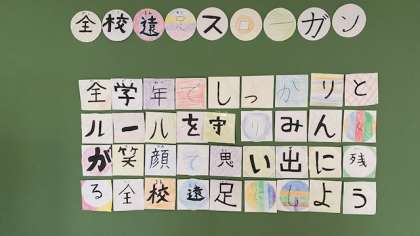 全校遠足スローガン
全学年でしっかりと
ルールを守りみんな
が笑顔で思い出に残
る全校遠足にしよう